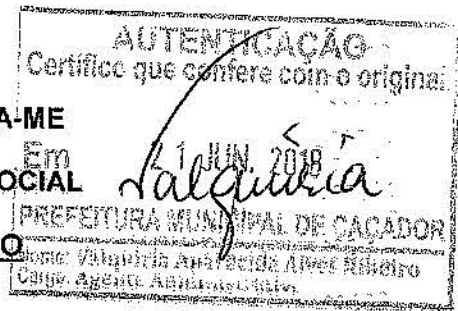 AUTENTICAÇÃO
Certifico que confere com o original
A-ME
Em 21 JUN. 2018
OCIAL
Valquíria
PREFEITURA MUNICIPAL DE CAÇADOR
O
Nome: Valquíria Aparecida Alves Ribeiro
Cargo: Agente Administrativo